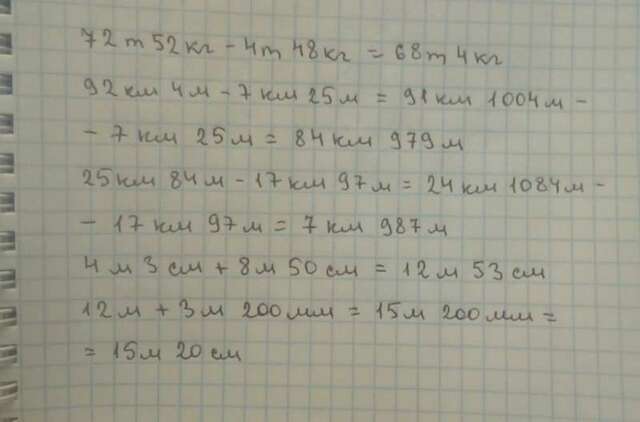 72 т 52 кг - 4 т 48 кг = 68 т 4 кг
92 км 4 м - 7 км 25 м = 91 км 1004 м -
- 7 км 25 м = 84 км 979 м
25 км 84 м - 17 км 97 м = 24 км 1084 м -
- 17 км 97 м = 7 км 987 м
4 м 3 см + 8 м 50 см = 12 м 53 см
12 м + 3 м 200 мм = 15 м 200 мм =
= 15 м 20 см